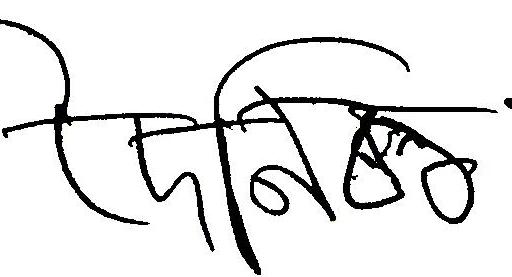 দৈনিক